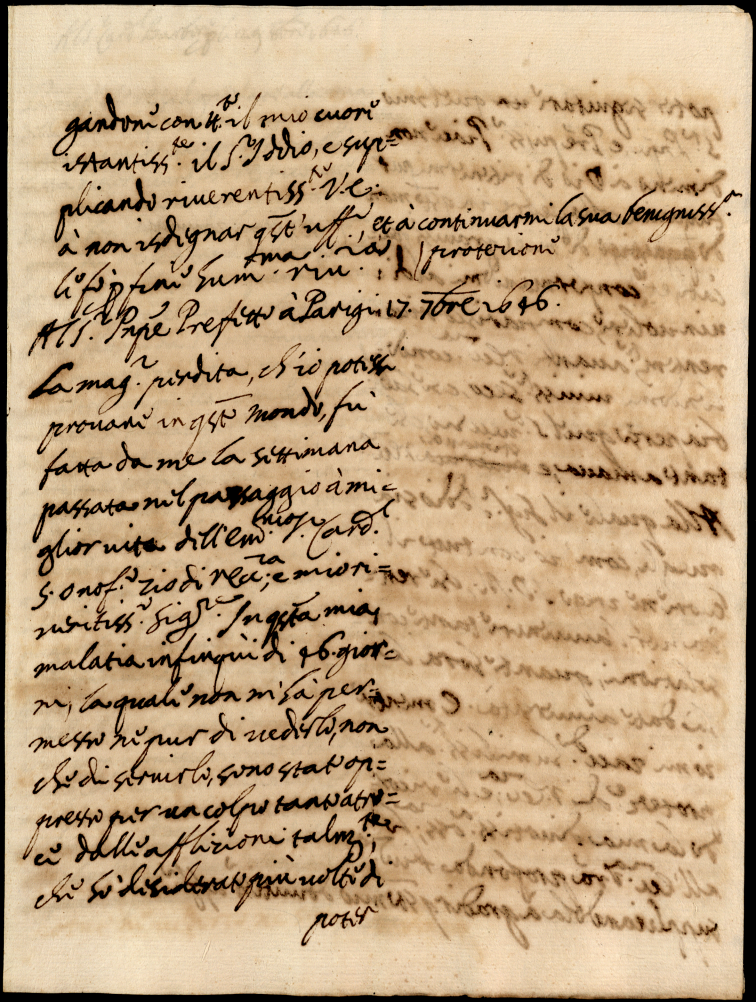 gandone con q.to il mio cuore
istantiss.te il S.r Iddio, e sup=
plicando riverentiss.te V.E.
à non isdegnar q̃st' uff.o, et à continuarmi la sua benigniss.a
protezione
le fò p fine hum.ma riv.
Al S.r Pnpe Prefetto à Parigi 17. 7bre 1646.
La mag.r perdita, ch'io potessi
provare in q̃sto mondo, fù
fatta da me la settimana
passata nel passaggio à mi=
glior vita dell'Em.mo S.r Card.l
S. Onof.o zio di V. Ecc.za, e mio ri=
veritiss.o Sig.re. In q̃sta mia
malatia infin qui di 46. gior=
ni, la quale non m'hà per=
messo ne pur di vederlo, non
che di servirlo, sono stato op=
presso per un colpo tanto atro=
ce dalle afflizioni talm.te,
che hò desiderato più volte di
poter